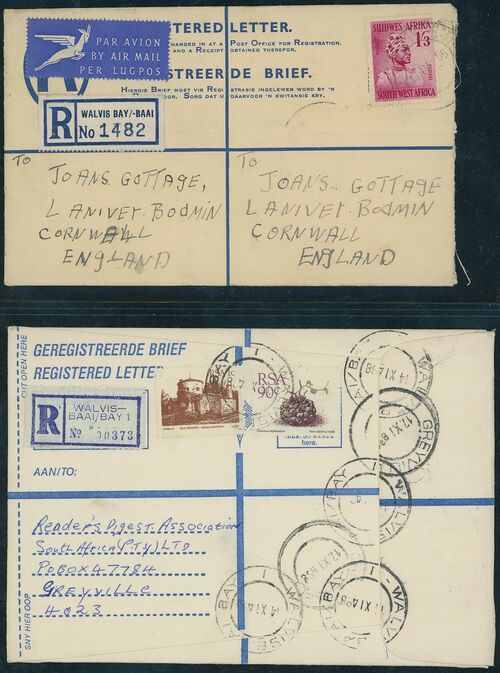 PAR AVION
BY AIR MAIL
PER LUGPOS
TERED LETTER.
HANDED IN AT A POST OFFICE FOR REGISTRATION.
AND A RECEIPT OBTAINED THEREFOR.
STREERDE BRIEF.
HIERDIE BRIEF MOET VIR REGISTRASIE INGELEWER WORD BY 'N
SORG DAT U DAARVOOR 'N KWITANSIE KRY.
SUIDWES-AFRIKA
1/3
SOUTH WEST AFRICA
R
WALVIS BAY/-BAAI
No 1482
TO
JOANS. GOTTAGE,
LANIVET. BODMIN
CORNWALL
ENGLAND
TO
JOANS. GOTTAGE
LANIVET. BODMIN
CORNWALL
ENGLAND
CUT OPEN HERE
GEREGISTREERDE BRIEF
REGISTERED LETTER
R
WALVIS-
BAAI/BAY 1
No 00373
RSA
90c
here.
AAN/TO:
Reader's Digest Association
South Africa (PTY) LTD
PO BOX 47784
GREYVILLE
4023
SNY HIER OOP
GREYVI
WALVIS
BAY
WALVIS
BAY
WALVIS
BAY